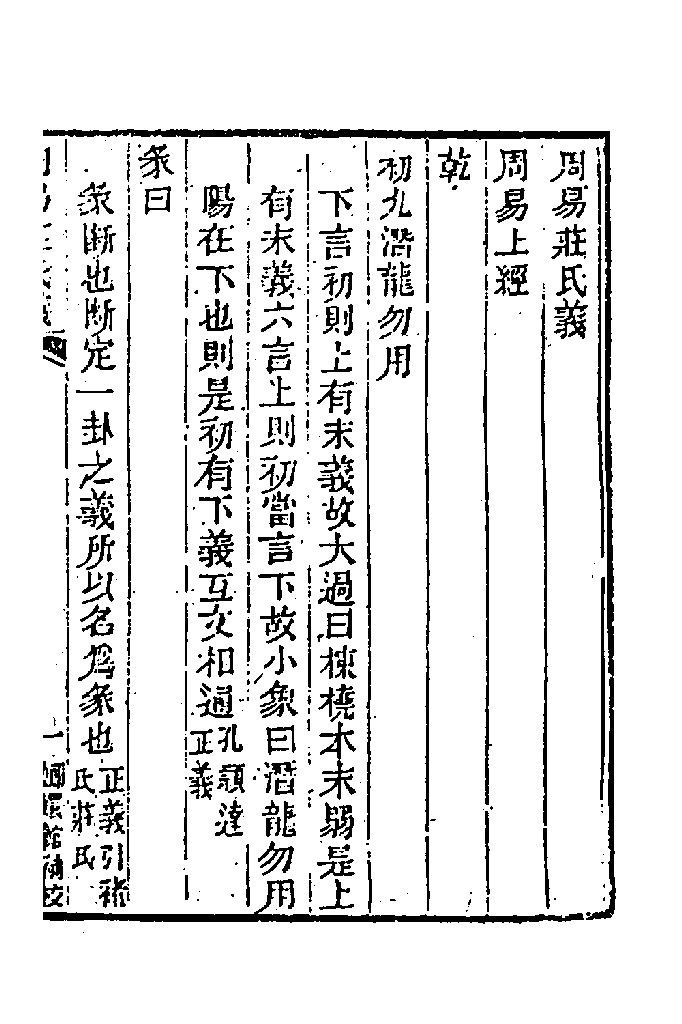 周易莊氏義
周易上經
乾
初九潛龍勿用
下言初則上有末義故大過曰棟橈本末弱是上
有末義六言上則初當言下故小象曰潛龍勿用
陽在下也則是初有下義互文相通孔穎達正義
彖曰
彖斷也斷定一卦之義所以名爲彖也正義引褚氏莊氏